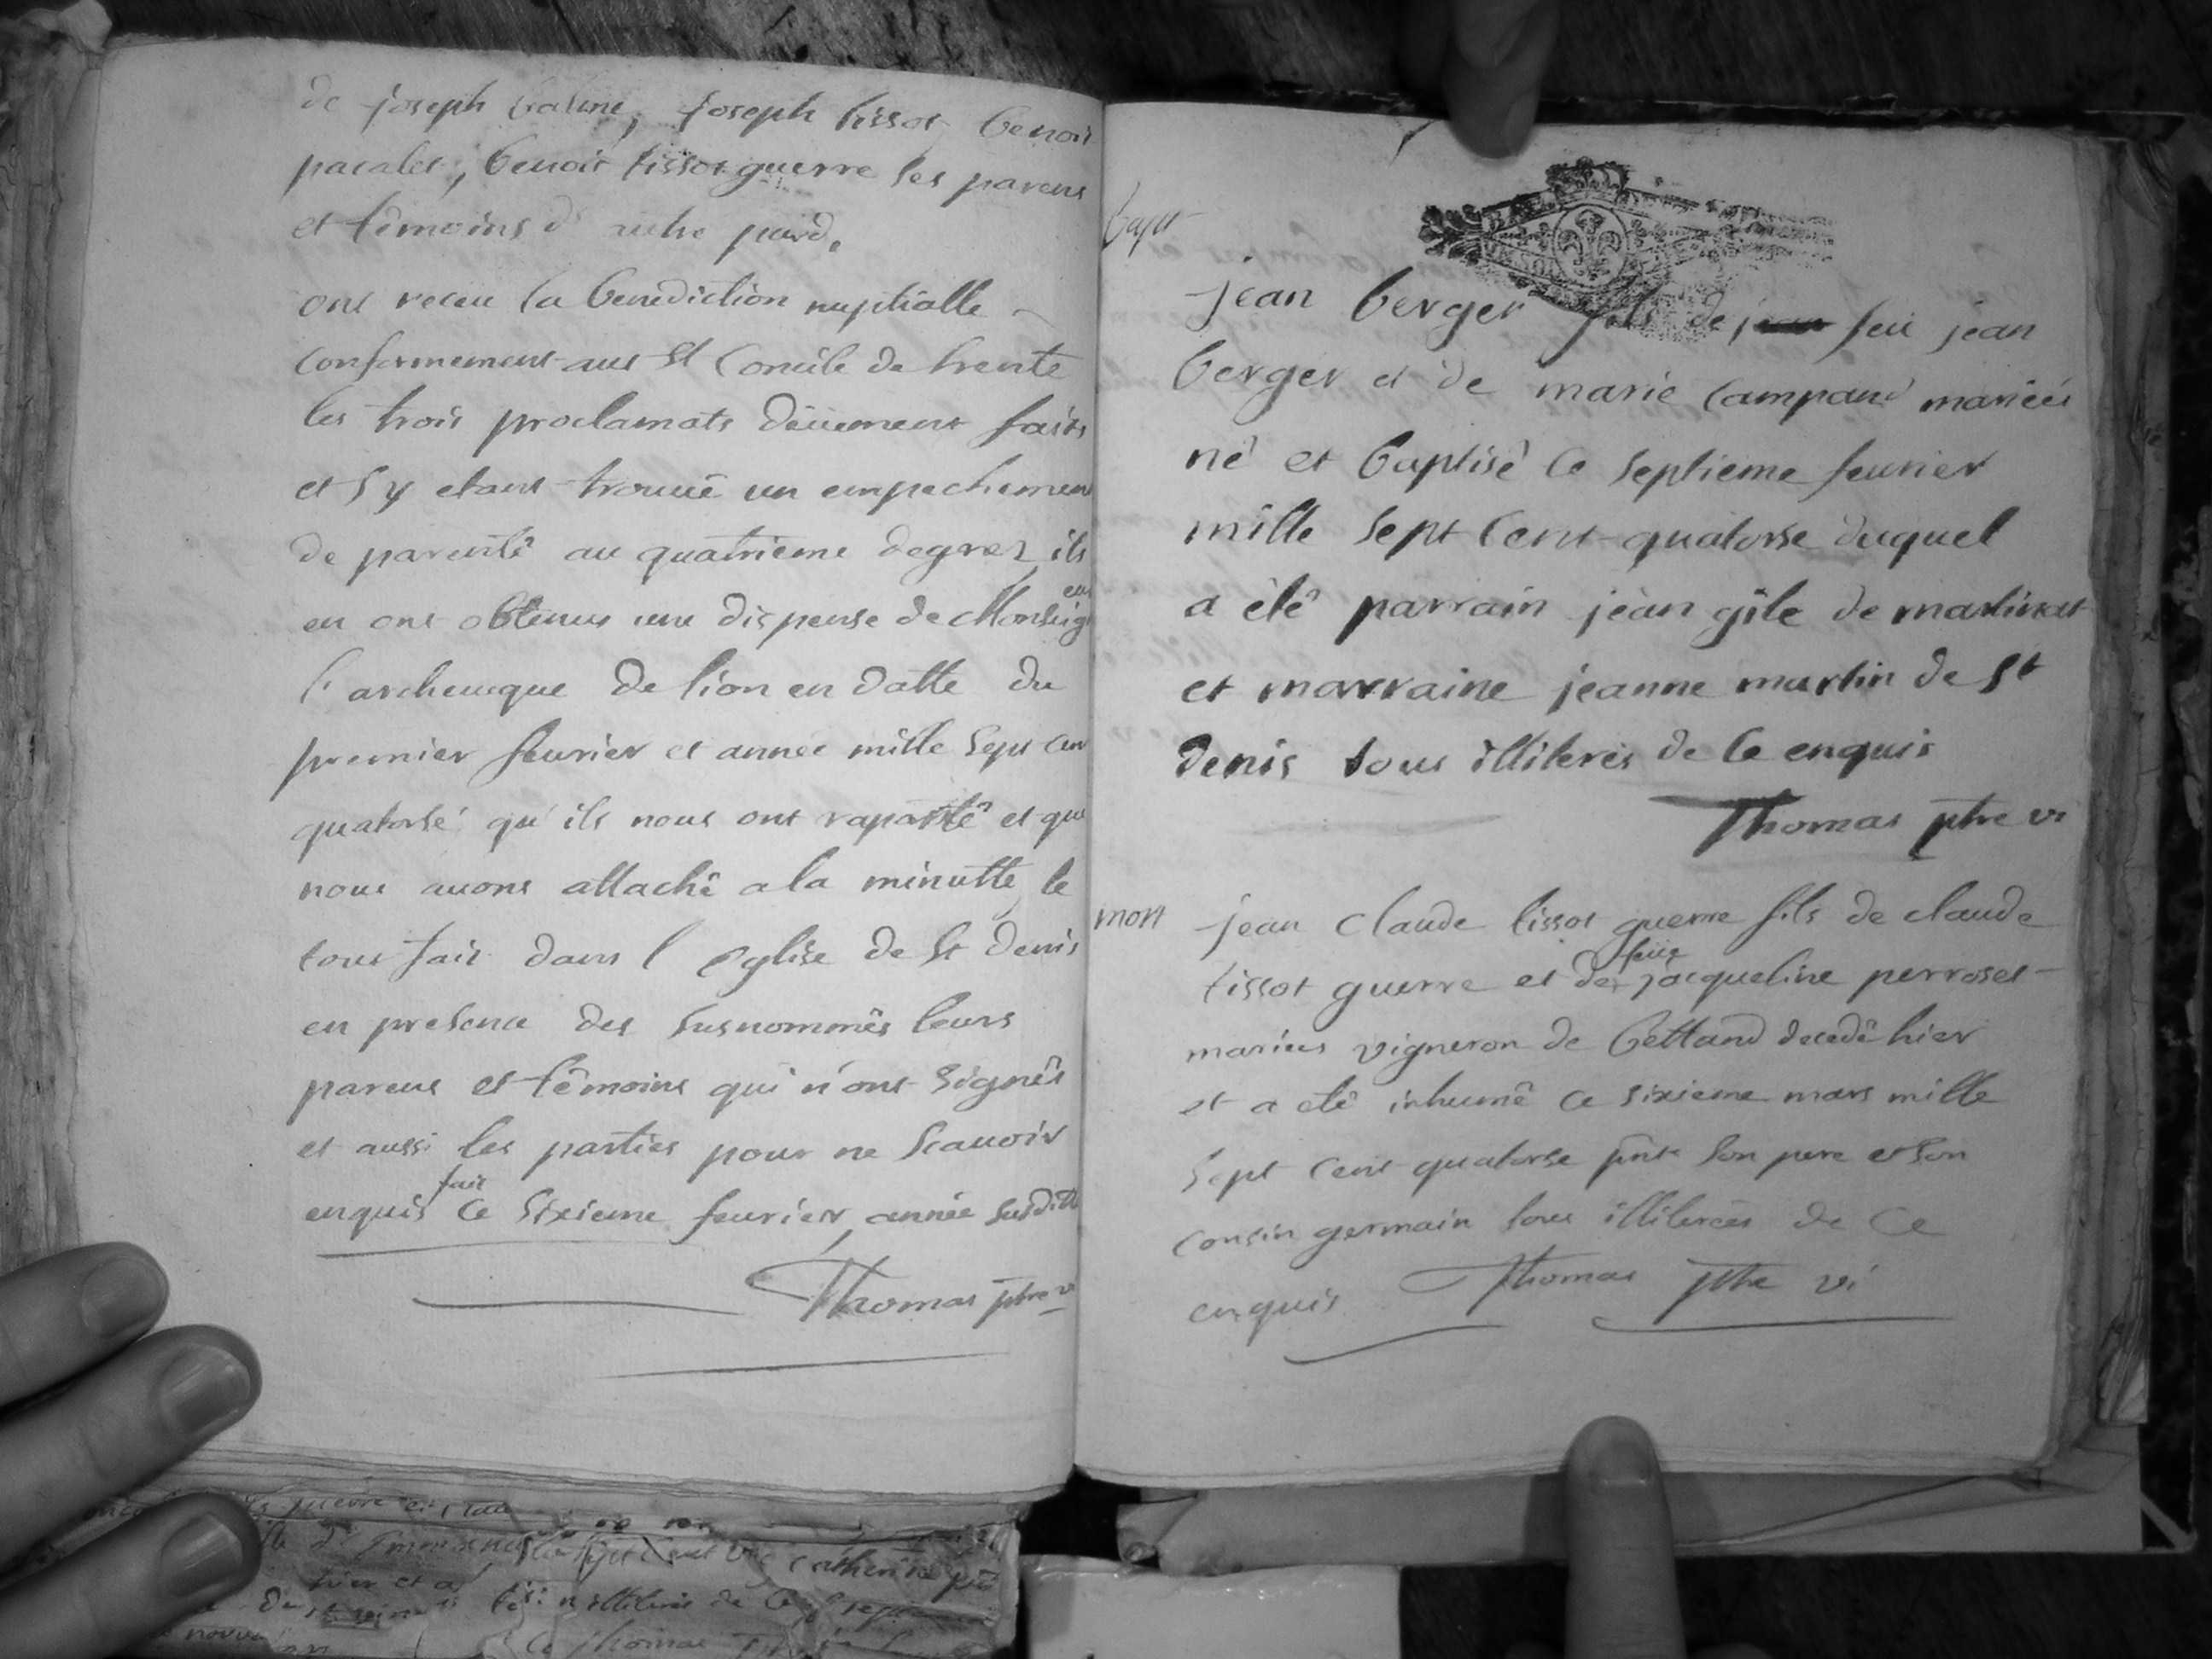 de joseph balme, joseph tissot benoit
pacalet, benoit tissot guerre ses parens
et têmoins d'autre pard,
ont receu la benediction nuptialle
conformement aus St Concile de trente
les trois proclamats dëuement faits
et s y etant trouuê un empechemen
de parentê au quatrieme degrez, ils
en ont obtenus une dispense de Monseig eur
l'archeueque de lion en datte du
premier feurier et année mille sept cen
quatorse qu'ils nous ont raportê et que
nous auons attachê a la minutte, le
tout fait dans l eglise de St denis
en presence des susnommês leurs
parens et têmoins qui n'ont signês
et aussi les parties pour ne scauoir
enquis fait ce sixieme feurier, année susditte
Thomas ptre v
bapt
jean berger fils de jean feu jean
berger et de marie Campand mariés
né et baptisé ce septieme feurier
mille sept Cent quatorse duquel
a êtê parrain jean gile de martinat
et marraine jeanne martin de St
denis tous illiteres de ce enquis
Thomas ptre vi
mort
jean Claude tissot guerre fils de claude
tissot guerre et de feüe jacqueline perroset
mariés vigneron de bettand decedê hier
et a etê inhumê ce sixieme mars mille
sept Cent quatorse pnts son pere et son
cousin germain tous illiterées de Ce
enquis Thomas ptre vi